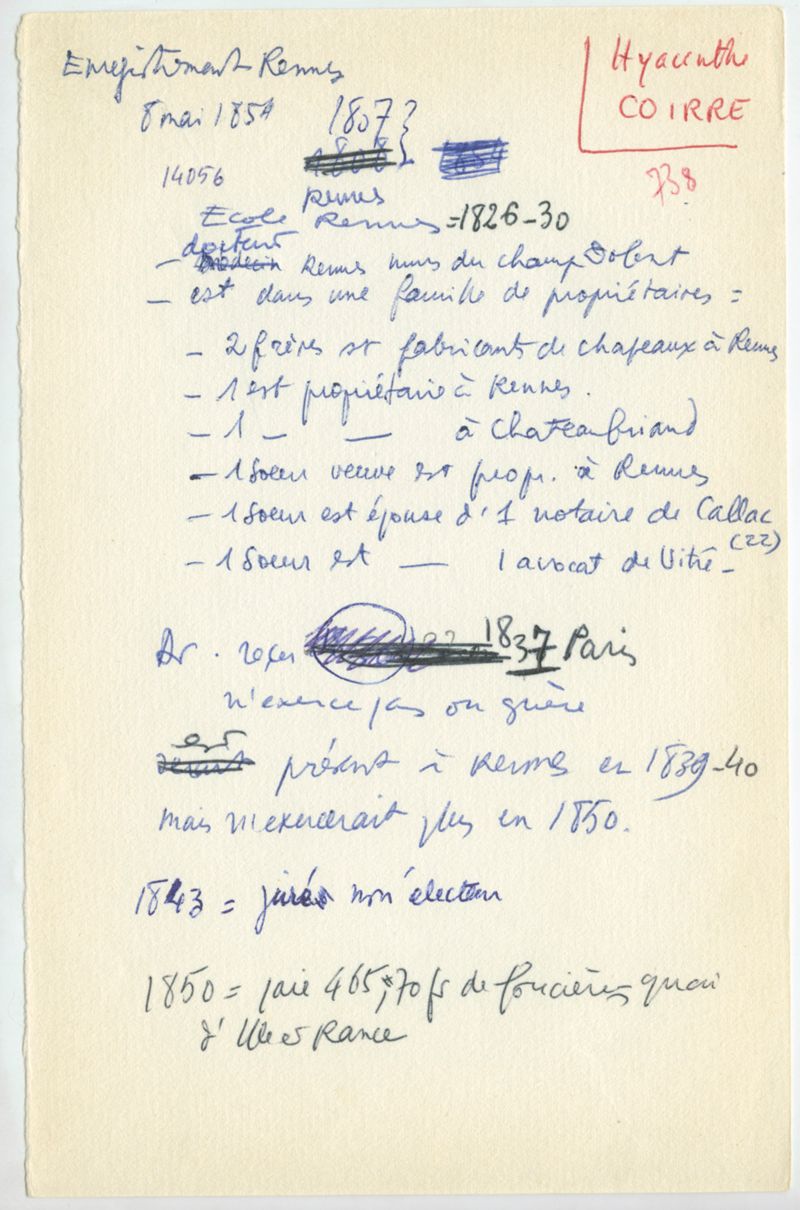 Enregistrement Rennes
Hyacinthe
COIRRE
8 mai 1854
1807
1808
14056
738
Rennes
Ecole Rennes = 1826-30
docteur
– médecin Rennes murs du champ Dolent
– est dans une famille de propriétaires =
– 2 frères st fabricants de chapeaux à Rennes
– 1 est propriétaire à Rennes.
– 1 – — à Chateaubriand
– 1 Soeur veuve est propr. à Rennes
– 1 Soeur est épouse d'1 notaire de Callac
(22)
– 1 Soeur est — 1 avocat de Vitré –
Dr. reçu 1837 Paris
n'exerce pas ou guère
est
présent à Rennes en 1839-40
mais n'exercerait plus en 1850.
1843 = jurés non électeur
1850 = paie 465,70 fr de foncières quai
d'Ille et Rance